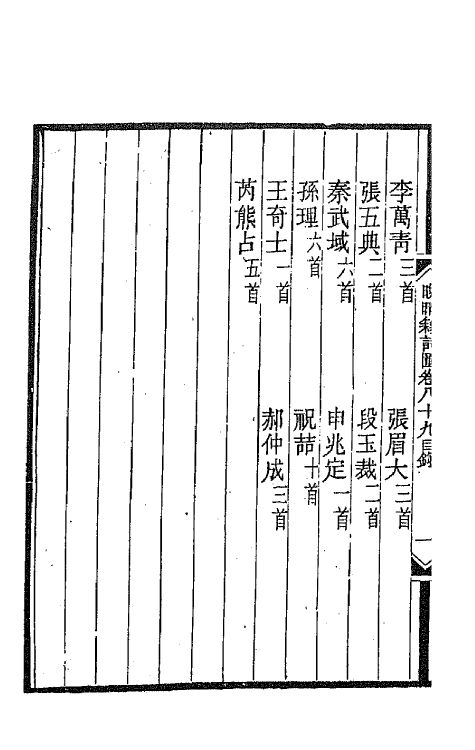 晚晴簃詩匯卷八十九目錄 一
李萬青三首 張眉大三首
張五典二首 段玉裁二首
秦武域六首 申兆定一首
孫理六首 祝喆十首
王奇士一首 郝仲成三首
芮熊占五首